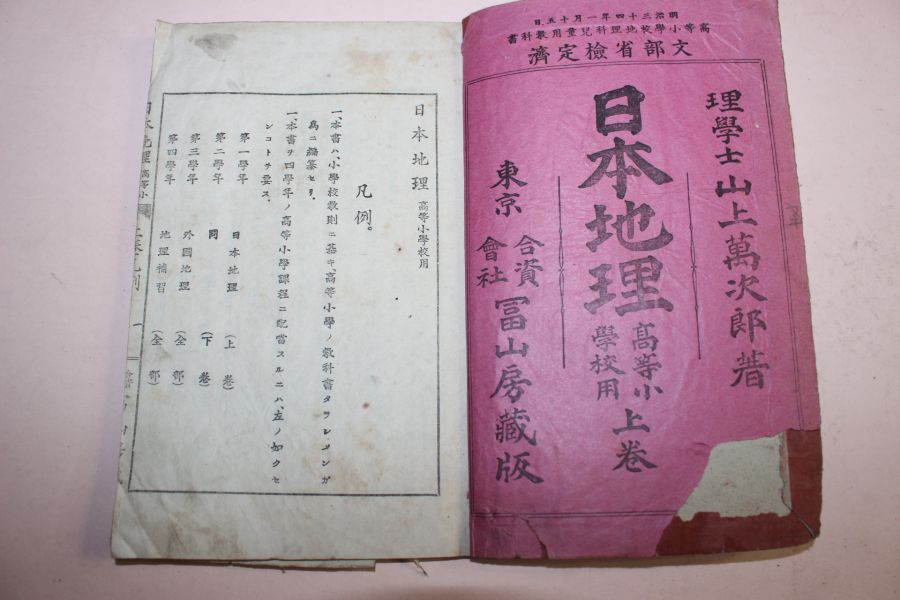 明治三十四年一月十五日
高等小學校地理科兒童用教科書
文部省檢定濟
理學士 山上萬次郎著
日本地理 高等小學校用 上卷
東京 合資會社 冨山房藏版
日本地理 高等小學校用
凡例。
一、本書ハ、小學校教則ニ基キ、高等小學ノ教科書タラシメンガ
爲ニ編纂セリ。
一、本書ヲ四學年ノ高等小學課程ニ配當スルニハ、左ノ如クセ
ンコトヲ要ス。
第一學年 日本地理 (上卷)
第二學年 同 (下卷)
第三學年 外國地理 (全部)
第四學年 地理補習 (全部)
日本地理 高等小